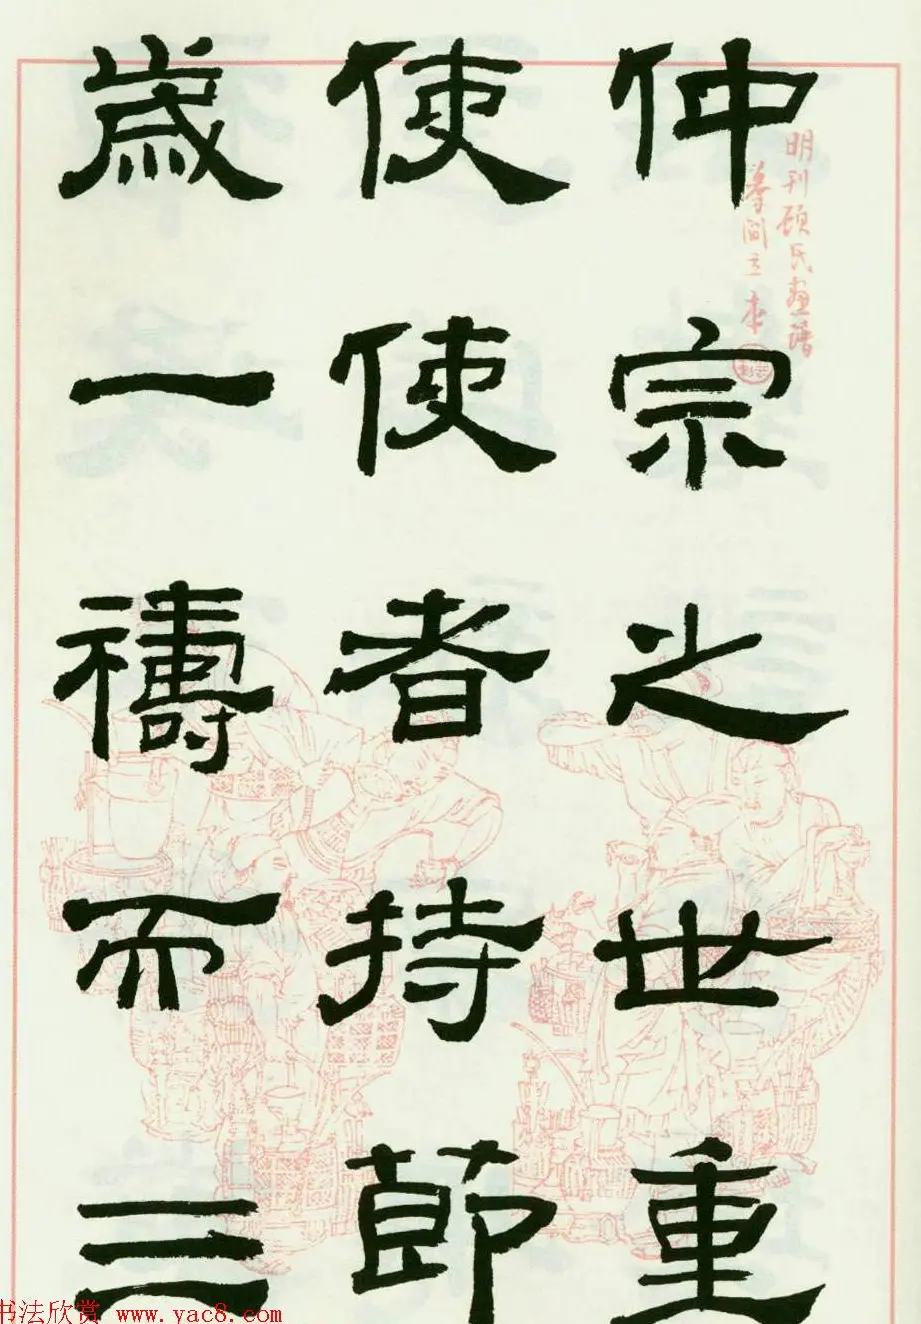 仲宗之世重
使使者持節
歲一禱而三
明刊顾氏画譜
摹阎立本
书法欣赏 www.yac8.com